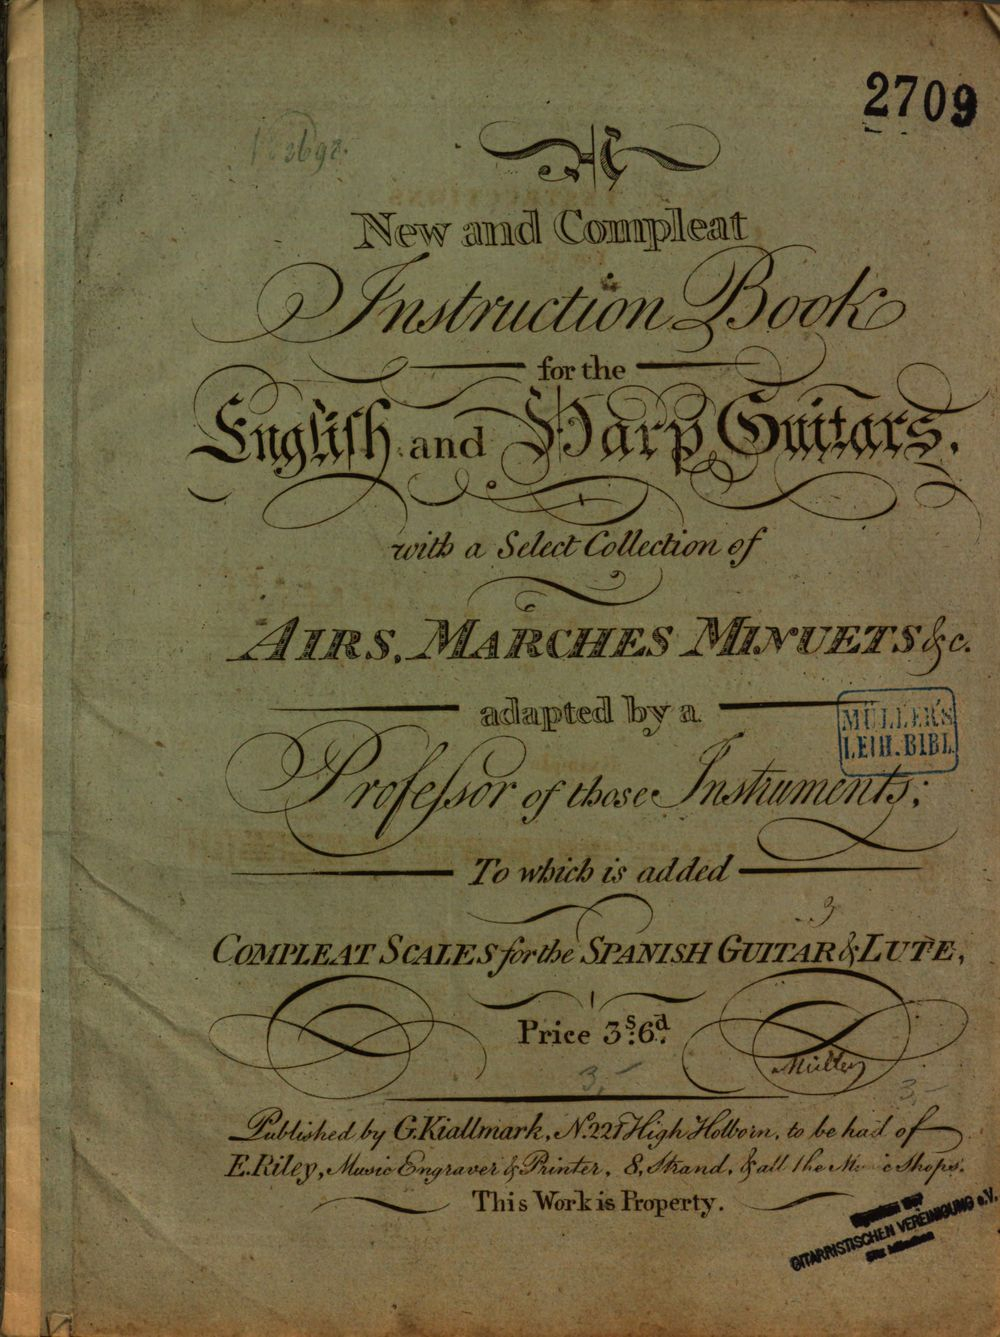 2709
A
New and Compleat
Instruction Book
for the
English and Harp Guitars,
with a Select Collection of
AIRS, MARCHES MINUETS &c.
adapted by a
MÜLLER'S
LEIH. BIBL.
Professor of those Instruments;
To which is added
COMPLEAT SCALES for the SPANISH GUITAR & LUTE,
Price 3s. 6d.
Müller
3,-
3,-
Published by G. Kiallmark, No. 221 High Holborn, to be had of
E. Riley, Music Engraver & Printer, 8, Strand, & all the Music Shops.
This Work is Property.
GITARRISTISCHEN VEREINIGUNG e.V.